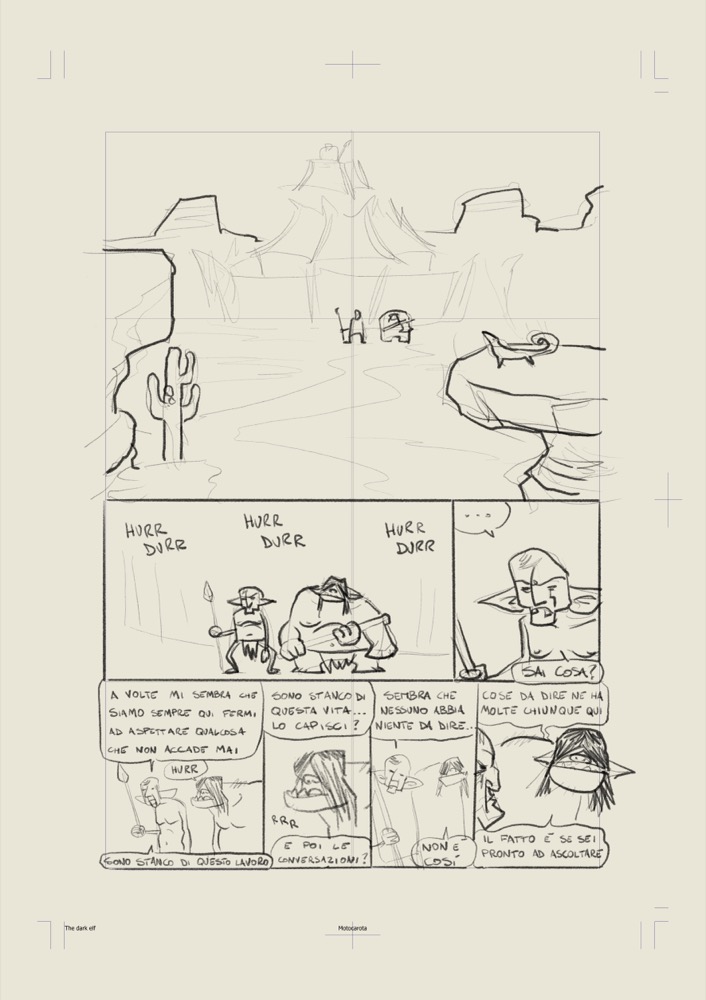 HURR
DURR
HURR
DURR
HURR
DURR
...
SAI COSA?
A VOLTE MI SEMBRA CHE
SIAMO SEMPRE QUI FERMI
AD ASPETTARE QUALCOSA
CHE NON ACCADE MAI
HURR
SONO STANCO DI QUESTO LAVORO
SONO STANCO DI
QUESTA VITA...
LO CAPISCI?
RRR
E POI LE
CONVERSAZIONI?
SEMBRA CHE
NESSUNO ABBIA
NIENTE DA DIRE...
NON È
COSÍ
COSE DA DIRE NE HA
MOLTE CHIUNQUE QUI
IL FATTO É SE SEI
PRONTO AD ASCOLTARE
The dark elf
Motocarota